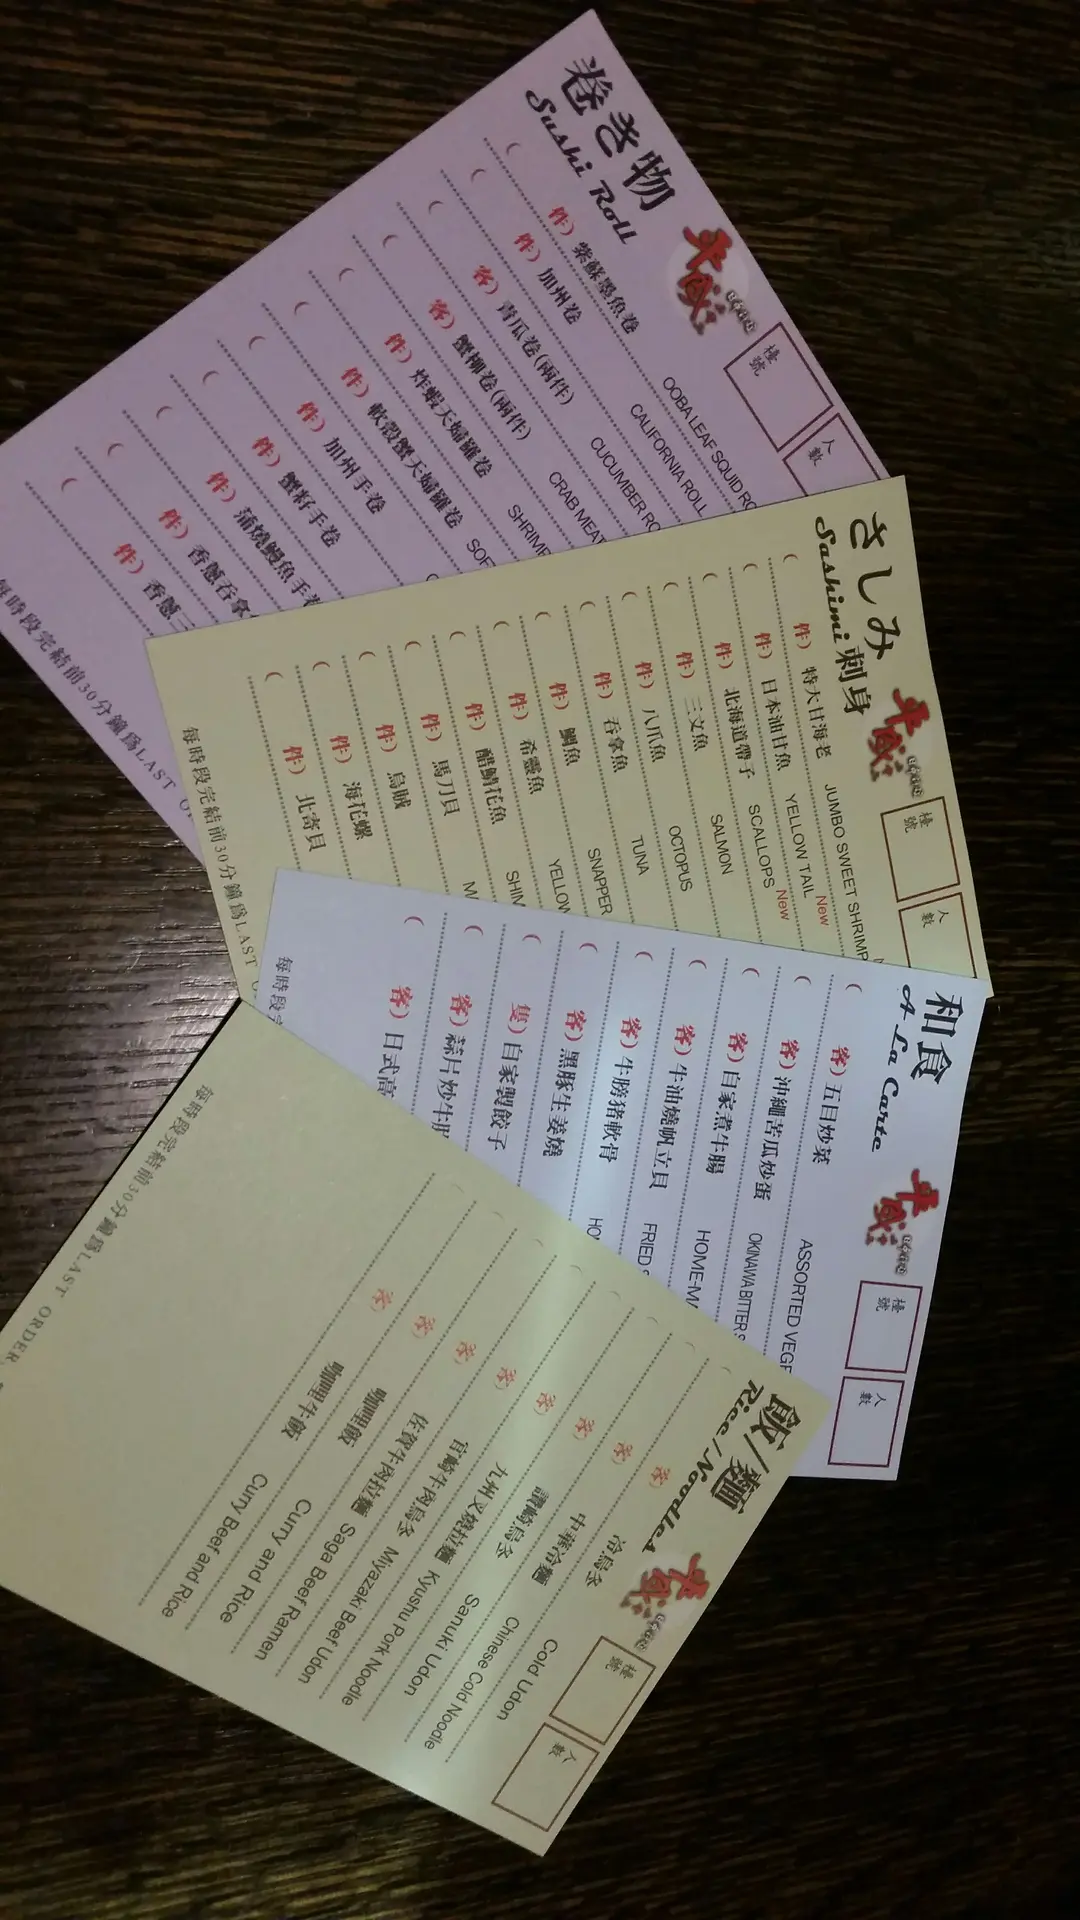 巻き物
Sushi Roll
平成
HEISEI
檯號
人數
( 件) 紫蘇墨魚卷 OOBA LEAF SQUID RO
( 件) 加州卷 CALIFORNIA ROLL
( 客) 青瓜卷(兩件) CUCUMBER RO
( 客) 蟹柳卷(兩件) CRAB MEAT
( 件) 炸蝦天婦羅卷 SHRIMP
( 件) 軟殼蟹天婦羅卷 SOF
( 件) 加州手卷
( 件) 蟹籽手卷
( 件) 蒲燒鰻魚手卷
( 件) 香蔥吞拿
( 件) 香蔥三
每時段完結前30分鐘為LAST O
さしみ
Sashimi 刺身
平成
檯號
人數
( 件) 特大甘海老 JUMBO SWEET SHRIMP
( 件) 日本油甘魚 YELLOW TAIL New
( 件) 北海道帶子 SCALLOPS New
( 件) 三文魚 SALMON
( 件) 八爪魚 OCTOPUS
( 件) 吞拿魚 TUNA
( 件) 鯛魚 SNAPPER
( 件) 希靈魚 YELLOW
( 件) 醋鯖花魚 SHIM
( 件) 馬刀貝 MA
( 件) 烏賊
( 件) 海花螺
( 件) 北寄貝
每時段完結前30分鐘為LAST O
和食
A La Carte
平成
檯號
人數
( 客) 五目炒菜 ASSORTED VEGE
( 客) 沖繩苦瓜炒蛋 OKINAWA BITTER S
( 客) 自家煮牛腸 HOME-MA
( 客) 牛油燒帆立貝 FRIED S
( 客) 牛膀猪軟骨 HO
( 客) 黑豚生姜燒
( 隻) 自家製餃子
( 客) 蒜片炒牛肥
( 客) 日式高
每時段完
飯/麵
Rice/Noodles
平成
檯號
人數
( 客) 冷烏冬 Cold Udon
( 客) 中華冷麵 Chinese Cold Noodle
( 客) 讚岐烏冬 Sanuki Udon
( 客) 九州叉燒拉麵 Kyushu Pork Noodle
( 客) 宮崎牛肉烏冬 Miyazaki Beef Udon
( 客) 佐賀牛肉拉麵 Saga Beef Ramen
( 客) 咖喱飯 Curry and Rice
( 客) 咖喱牛飯 Curry Beef and Rice
每時段完結前30分鐘為LAST ORDER